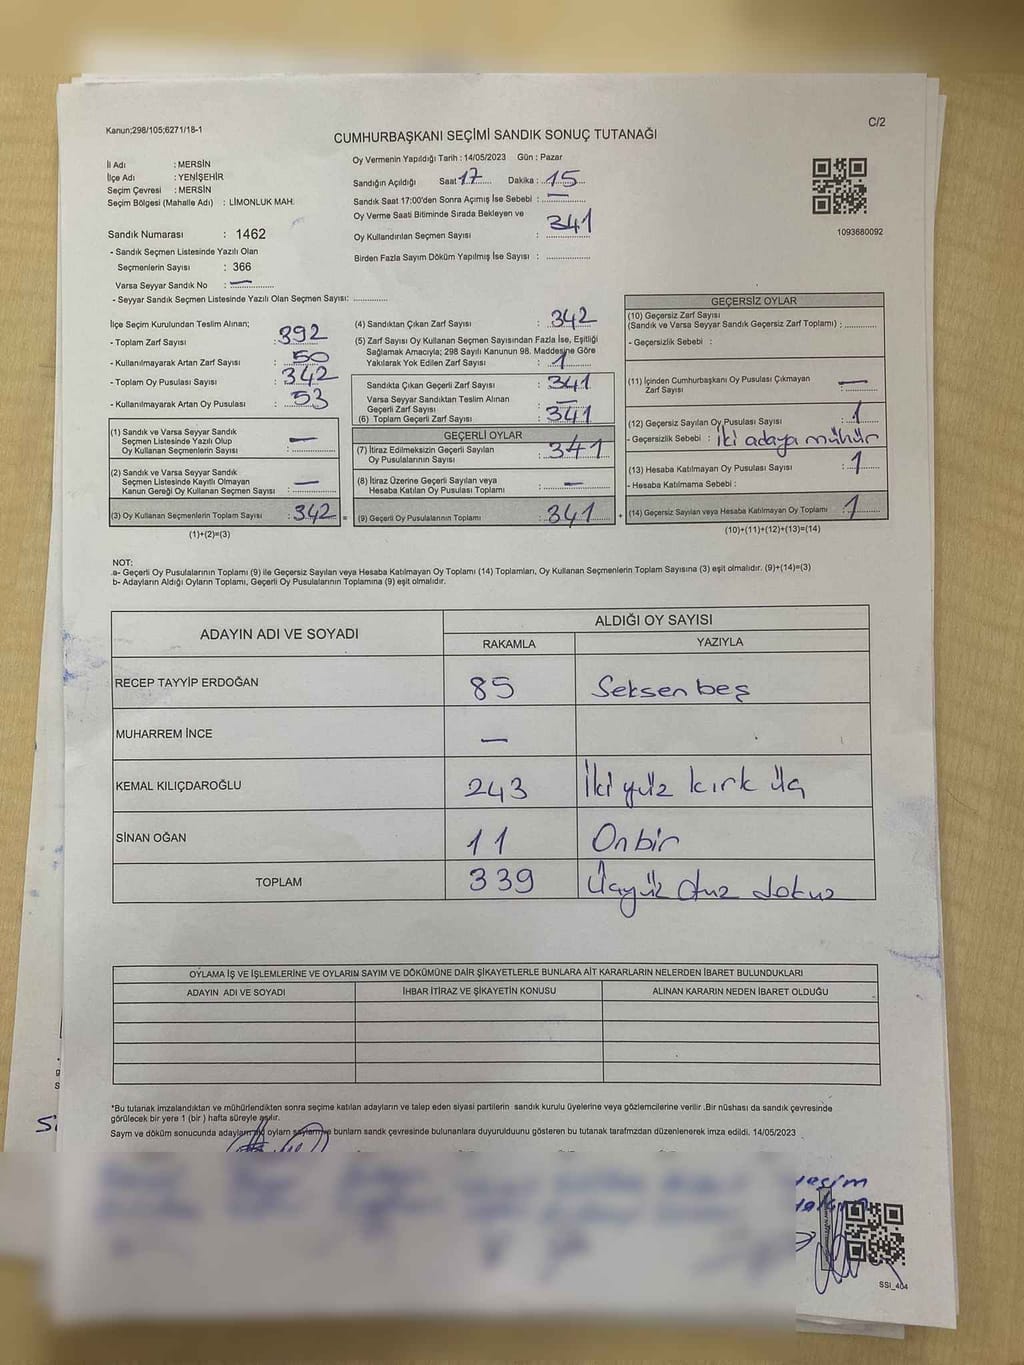 Kanun;298/105;6271/18-1
C/2
CUMHURBAŞKANI SEÇİMİ SANDIK SONUÇ TUTANAĞI
İl Adı : MERSİN
İlçe Adı : YENİŞEHİR
Seçim Çevresi : MERSİN
Seçim Bölgesi (Mahalle Adı) : LİMONLUK MAH.
Sandık Numarası : 1462
- Sandık Seçmen Listesinde Yazılı Olan
Seçmenlerin Sayısı : 366
Varsa Seyyar Sandık No : —
- Seyyar Sandık Seçmen Listesinde Yazılı Olan Seçmen Sayısı: ............
Oy Vermenin Yapıldığı Tarih : 14/05/2023 Gün : Pazar
Sandığın Açıldığı Saat 17 Dakika : 15
Sandık Saat 17:00'den Sonra Açımış İse Sebebi : —
Oy Verme Saati Bitiminde Sırada Bekleyen ve
Oy Kullandırılan Seçmen Sayısı : 341
Birden Fazla Sayım Döküm Yapılmış İse Sayısı : ............
1093680092
İlçe Seçim Kurulundan Teslim Alınan;
- Toplam Zarf Sayısı : 392
- Kullanılmayarak Artan Zarf Sayısı : 50
- Toplam Oy Pusulası Sayısı : 342
- Kullanılmayarak Artan Oy Pusulası : 53
(1) Sandık ve Varsa Seyyar Sandık
Seçmen Listesinde Yazılı Olup
Oy Kullanan Seçmenlerin Sayısı : —
(2) Sandık ve Varsa Seyyar Sandık
Seçmen Listesinde Kayıtlı Olmayan
Kanun Gereği Oy Kullanan Seçmen Sayısı : —
(3) Oy Kullanan Seçmenlerin Toplam Sayısı : 342 =
(1)+(2)=(3)
(4) Sandıktan Çıkan Zarf Sayısı : 342
(5) Zarf Sayısı Oy Kullanan Seçmen Sayısından Fazla İse, Eşitliği
Sağlamak Amacıyla; 298 Sayılı Kanunun 98. Maddesine Göre
Yakılarak Yok Edilen Zarf Sayısı : 1
Sandıkta Çıkan Geçerli Zarf Sayısı : 341
Varsa Seyyar Sandıktan Teslim Alınan
Geçerli Zarf Sayısı : —
(6) Toplam Geçerli Zarf Sayısı : 341
GEÇERLİ OYLAR
(7) İtiraz Edilmeksizin Geçerli Sayılan
Oy Pusulasının Sayısı : 341
(8) İtiraz Üzerine Geçerli Sayılan veya
Hesaba Katılan Oy Pusulası Toplamı : —
(9) Geçerli Oy Pusulalarının Toplamı : 341 +
GEÇERSİZ OYLAR
(10) Geçersiz Zarf Sayısı
(Sandık ve Varsa Seyyar Sandık Geçersiz Zarf Toplamı) : .........
- Geçersizlik Sebebi :
(11) İçinden Cumhurbaşkanı Oy Pusulası Çıkmayan
Zarf Sayısı : —
(12) Geçersiz Sayılan Oy Pusulası Sayısı : 1
- Geçersizlik Sebebi : iki adaya mühür
(13) Hesaba Katılmayan Oy Pusulası Sayısı : 1
- Hesaba Katılmama Sebebi :
(14) Geçersiz Sayılan veya Hesaba Katılmayan Oy Toplamı : 1
(10)+(11)+(12)+(13)=(14)
NOT:
a- Geçerli Oy Pusulalarının Toplamı (9) ile Geçersiz Sayılan veya Hesaba Katılmayan Oy Toplamı (14) Toplamları, Oy Kullanan Seçmenlerin Toplam Sayısına (3) eşit olmalıdır. (9)+(14)=(3)
b- Adayların Aldığı Oyların Toplamı, Geçerli Oy Pusulalarının Toplamına (9) eşit olmalıdır.
ADAYIN ADI VE SOYADI ALDIĞI OY SAYISI
RAKAMLA YAZIYLA
RECEP TAYYİP ERDOĞAN 85 Seksen beş
MUHARREM İNCE —
KEMAL KILIÇDAROĞLU 243 İki yüz kırk üç
SİNAN OĞAN 11 On bir
TOPLAM 339 Üçyüz otuz dokuz
OYLAMA İŞ VE İŞLEMLERİNE VE OYLARIN SAYIM VE DÖKÜMÜNE DAİR ŞİKAYETLERLE BUNLARA AİT KARARLARIN NELERDEN İBARET BULUNDUKLARI
ADAYIN ADI VE SOYADI İHBAR İTİRAZ VE ŞİKAYETİN KONUSU ALINAN KARARIN NEDEN İBARET OLDUĞU
*Bu tutanak imzalandıktan ve mühürlendikten sonra seçime katılan adayların ve talep eden siyasi partilerin sandık kurulu üyelerine veya gözlemcilerine verilir .Bir nüshası da sandık çevresinde
görülecek bir yere 1 (bir ) hafta süreyle asılır.
Sayım ve döküm sonucunda adayların oyların ve bunların sandk çevresinde bulunanlara duyurulduunu gösteren bu tutanak tarafmzdan düzenlenerek imza edildi. 14/05/2023
SSI_404